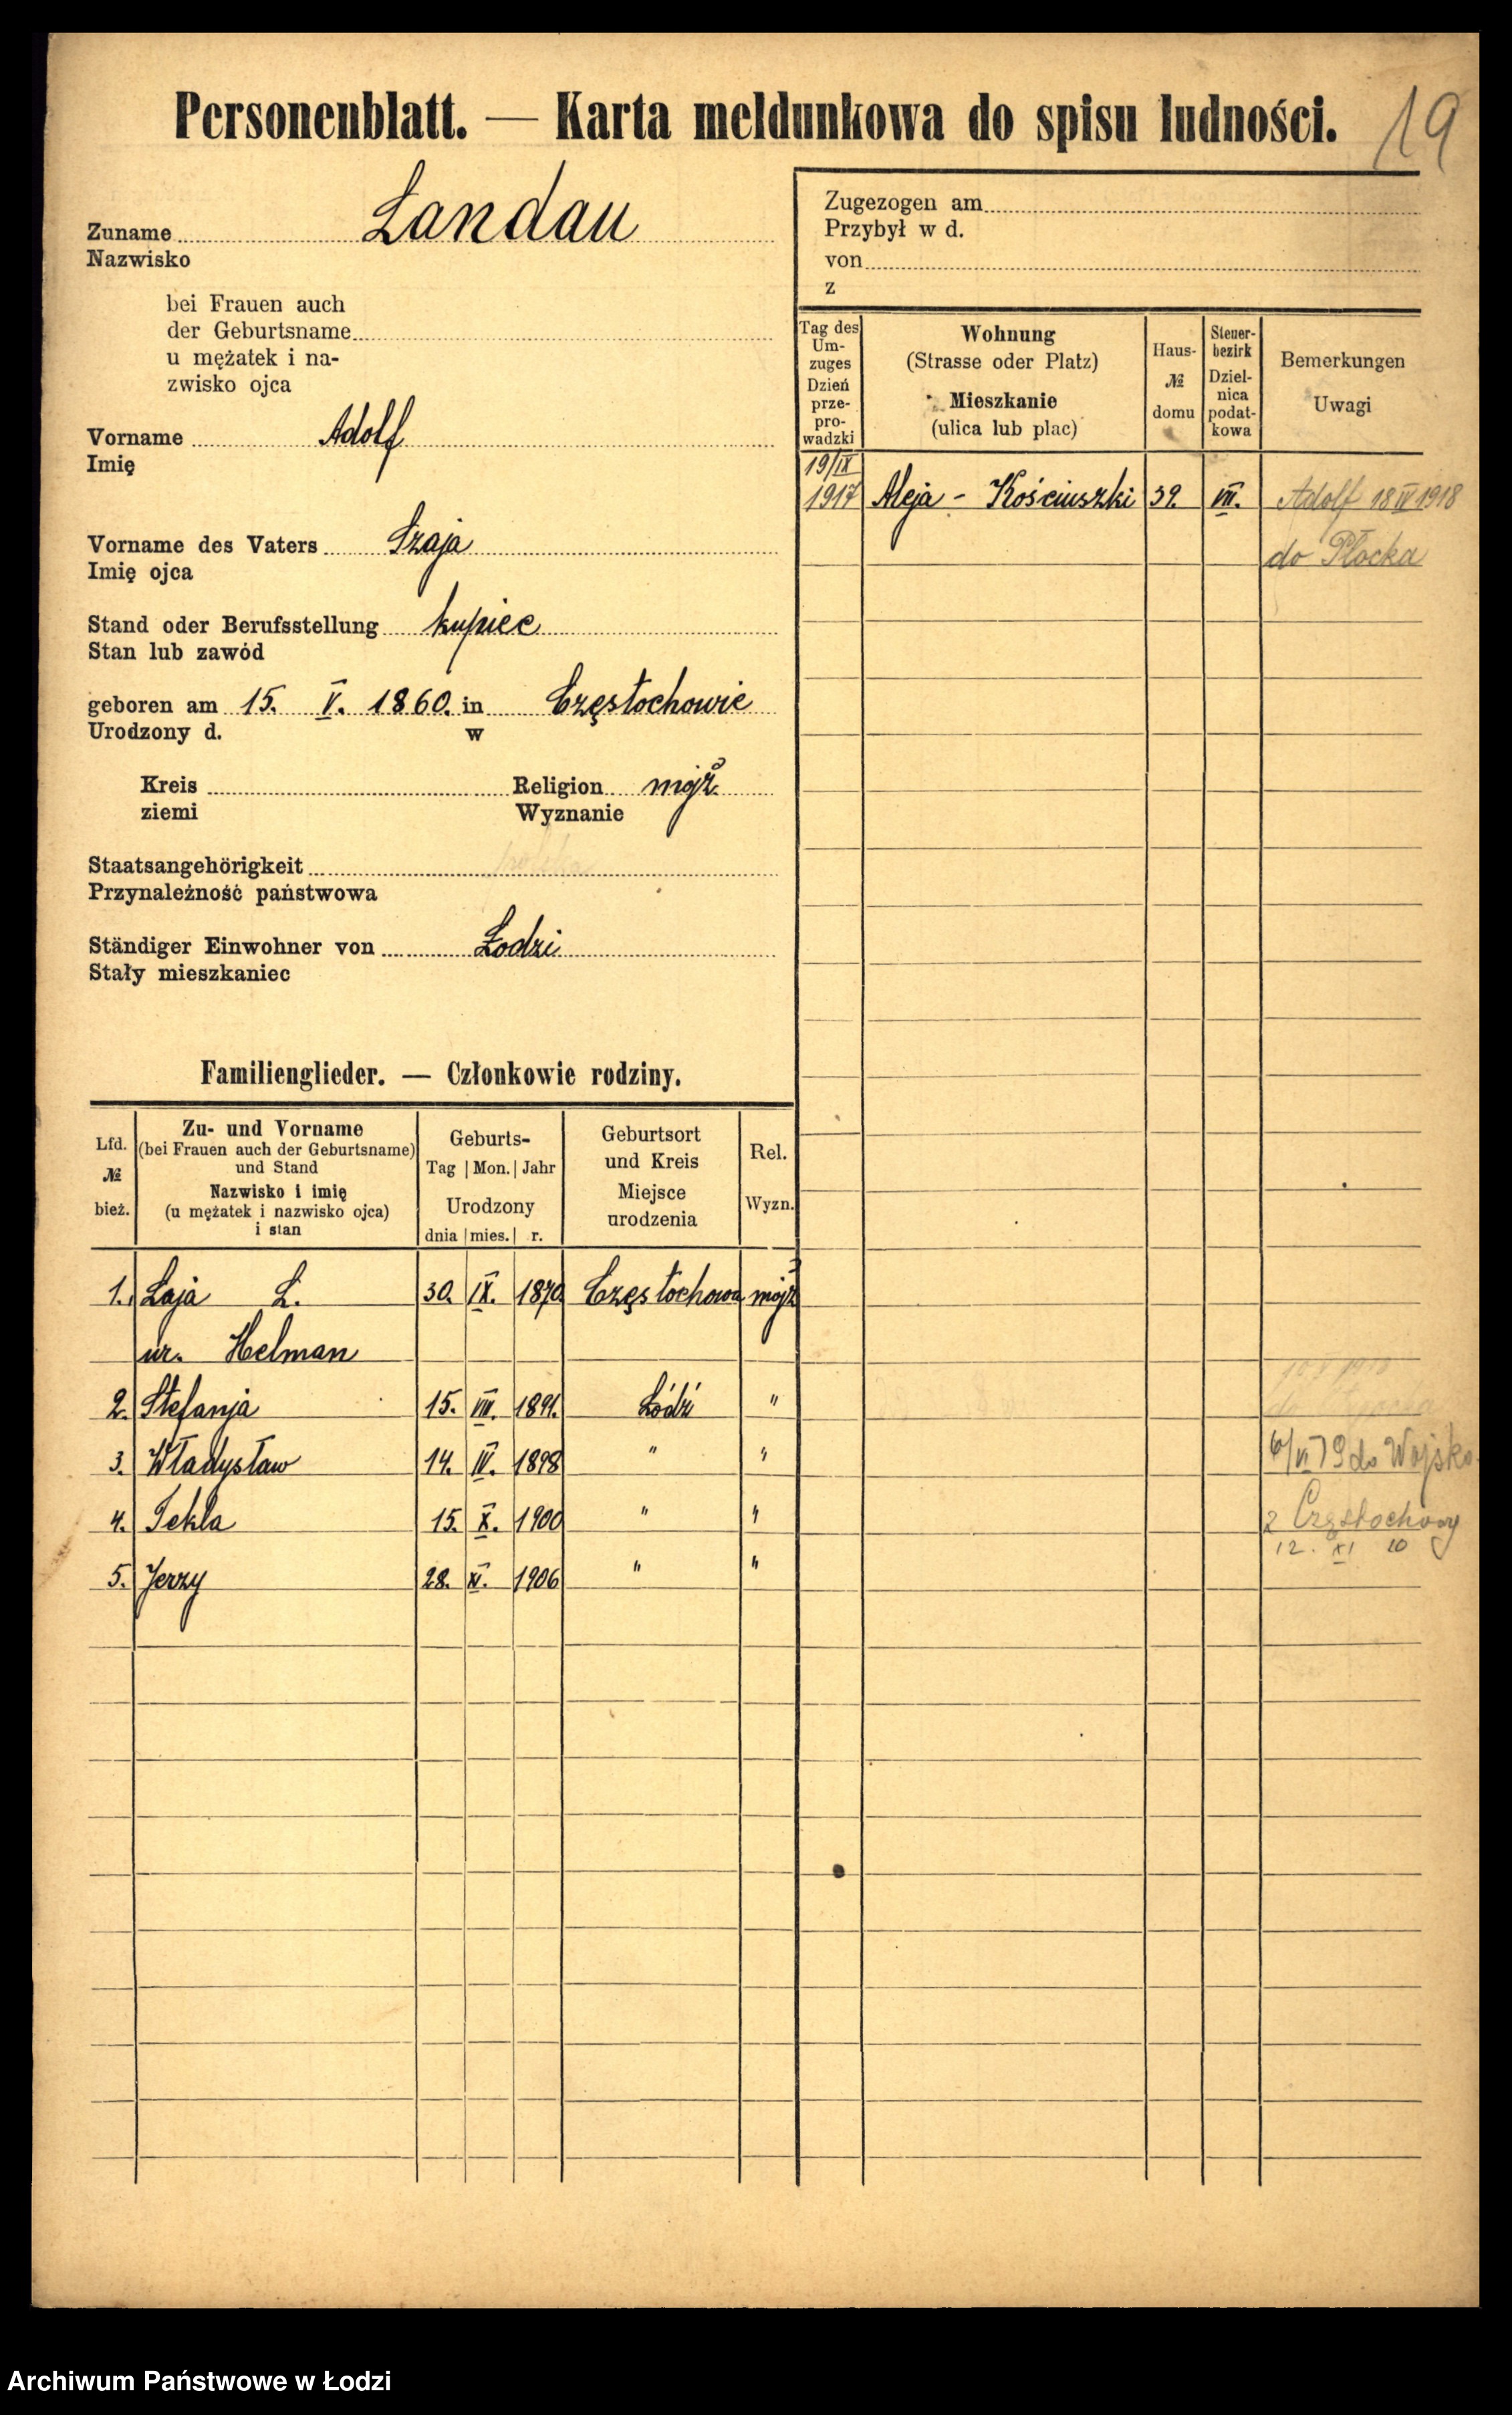 Personenblatt. — Karta meldunkowa do spisu ludności.
19
Zuname Landau
Nazwisko
bei Frauen auch
der Geburtsname
u mężatek i na-
zwisko ojca
Vorname Adolf
Imię
Vorname des Vaters Szaja
Imię ojca
Stand oder Berufsstellung kupiec
Stan lub zawód
geboren am 15. V. 1860. in Częstochowie
Urodzony d. w
Kreis Religion mojż
ziemi Wyznanie
Staatsangehörigkeit
Przynależność państwowa
Ständiger Einwohner von Łodzi
Stały mieszkaniec
Zugezogen am
Przybył w d.
von
z
Tag des
Um-
zuges
Dzień
prze-
pro-
wadzki
Wohnung
(Strasse oder Platz)
Mieszkanie
(ulica lub plac)
Haus-
№
domu
Steuer-
bezirk
Dziel-
nica
podat-
kowa
Bemerkungen
Uwagi
19/IX
1917 Aleja - Kościuszki 39. VII. Adolf 18 IV 1918
do Płocka
Familienglieder. — Członkowie rodziny.
Lfd.
№
bież.
Zu- und Vorname
(bei Frauen auch der Geburtsname)
und Stand
Nazwisko i imię
(u mężatek i nazwisko ojca)
i stan
Geburts-
Tag | Mon. | Jahr
Urodzony
dnia | mies. | r.
Geburtsort
und Kreis
Miejsce
urodzenia
Rel.
Wyzn.
1. Łaja L. 30. IX. 1870 Częstochowa mojż
ur. Helman
2. Stefanja 15. VII. 1891. Łódź "
3. Władysław 14. IV. 1898 " " do Wojska
4. Tekla 15. X. 1900 " " z Częstochowy
12. XI 20
5. Jerzy 28. XI. 1906 " "
Archiwum Państwowe w Łodzi